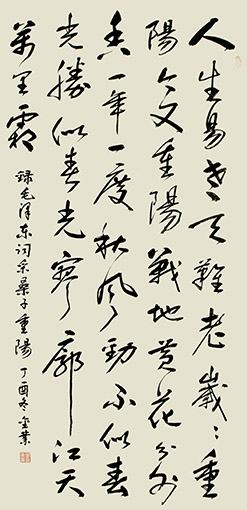 人生易老天難老歲〻重
陽今又重陽戰地黃花分外
香一年一度秋風勁不似春
光勝似春光寥廓江天
萬里霜
錄毛澤東詞采桑子重陽 丁酉冬金業